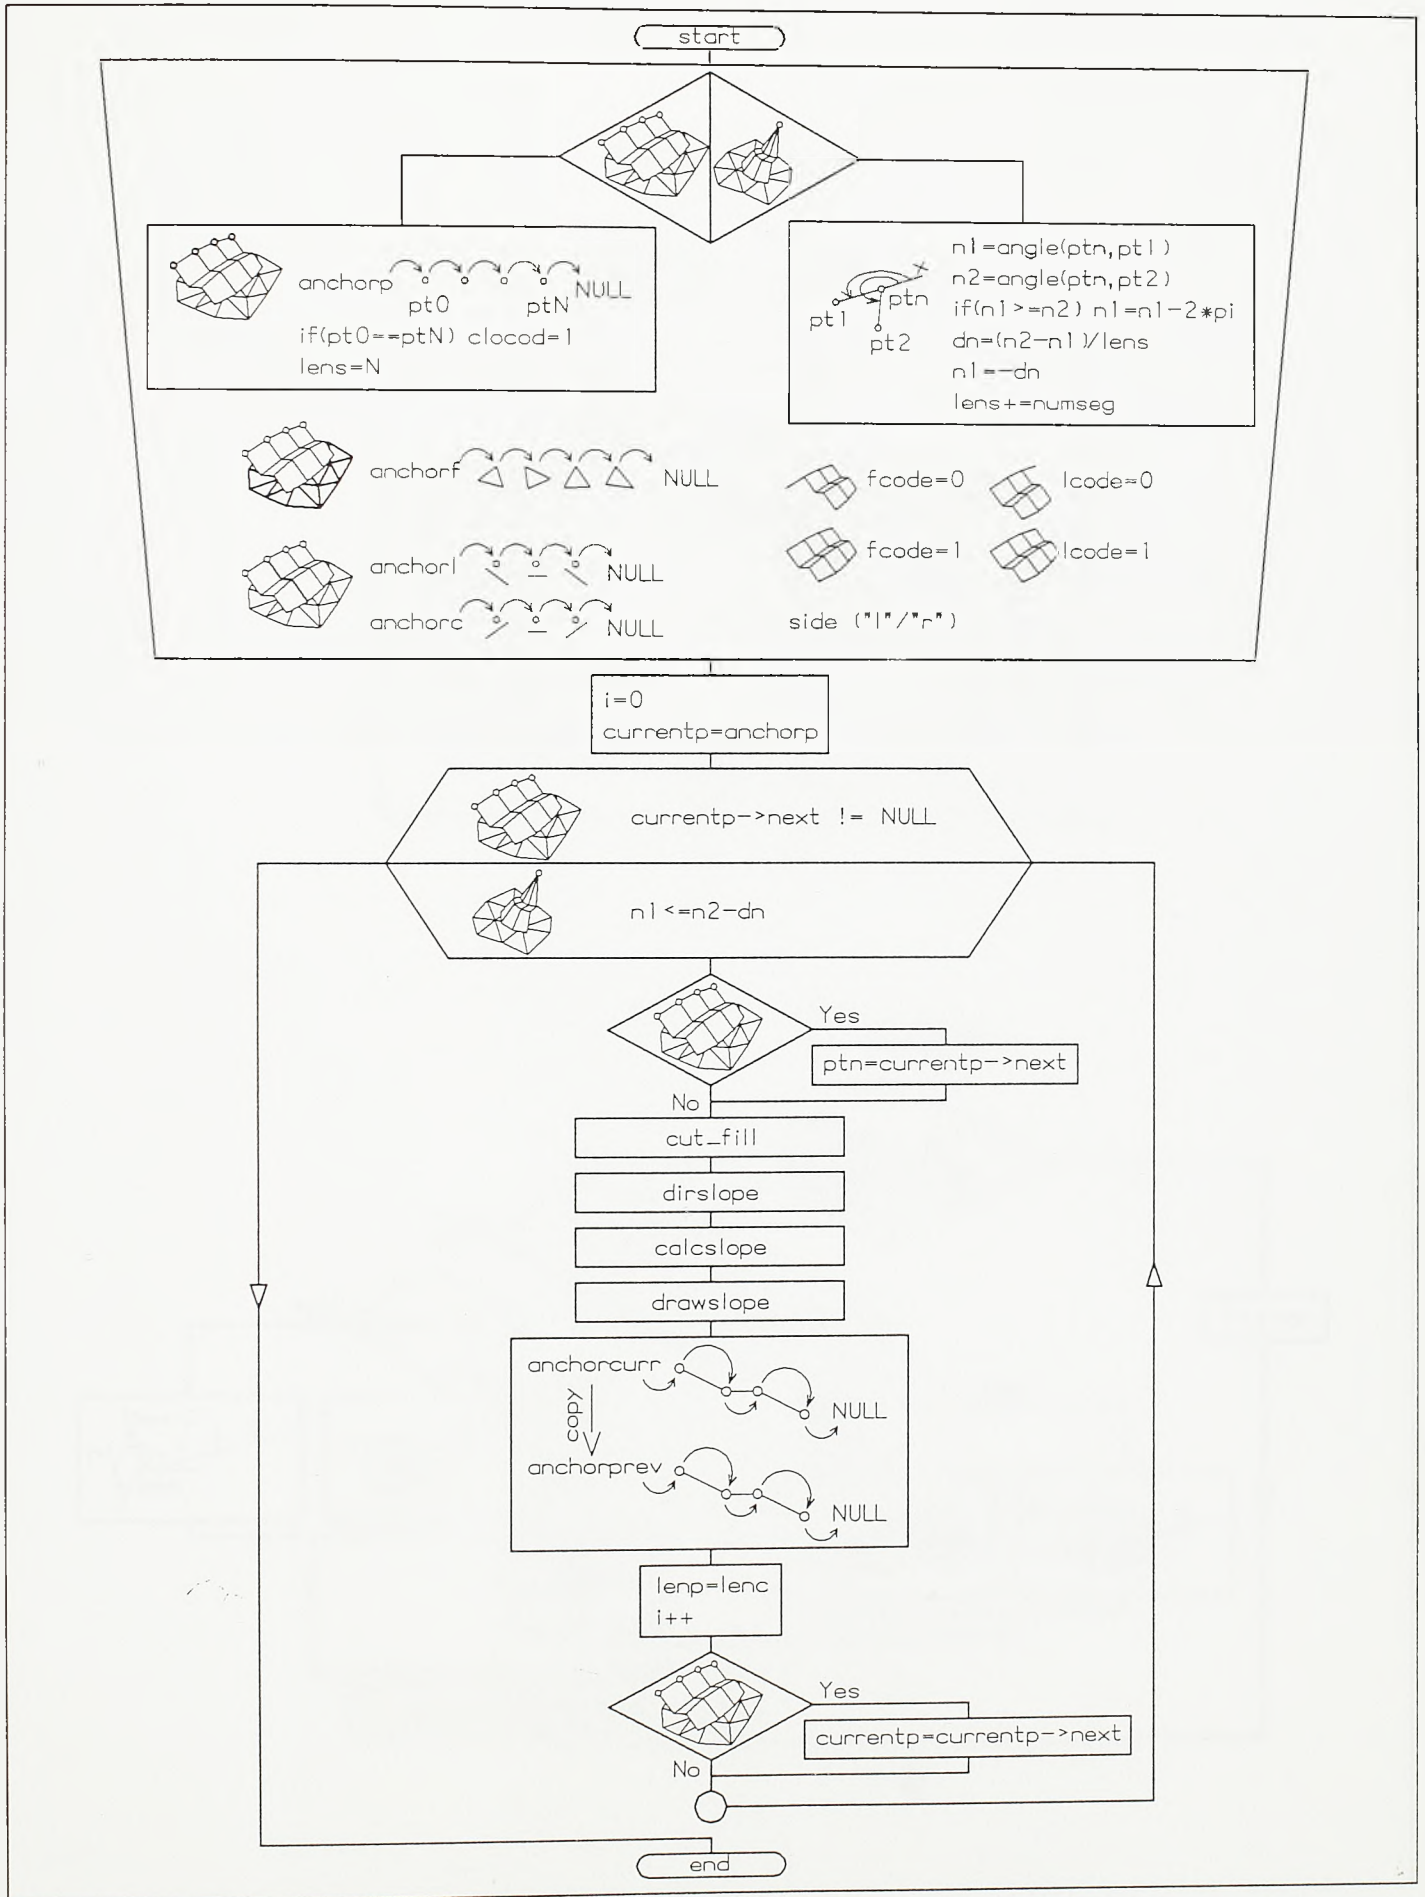 start
anchorp
pt0
ptN
NULL
if(pt0==ptN) clocod=1
lens=N
n1=angle(ptn,pt1)
n2=angle(ptn,pt2)
if(n1>=n2) n1=n1-2*pi
dn=(n2-n1)/lens
n1=-dn
lens+=numseg
x
ptn
pt1
pt2
anchorf
NULL
fcode=0
lcode=0
anchorl
NULL
fcode=1
lcode=1
anchorc
NULL
side ("l"/"r")
i=0
currentp=anchorp
currentp->next != NULL
n1<=n2-dn
Yes
ptn=currentp->next
No
cut_fill
dirslope
calcslope
drawslope
anchorcurr
NULL
copy
anchorprev
NULL
lenp=lenc
i++
Yes
currentp=currentp->next
No
end